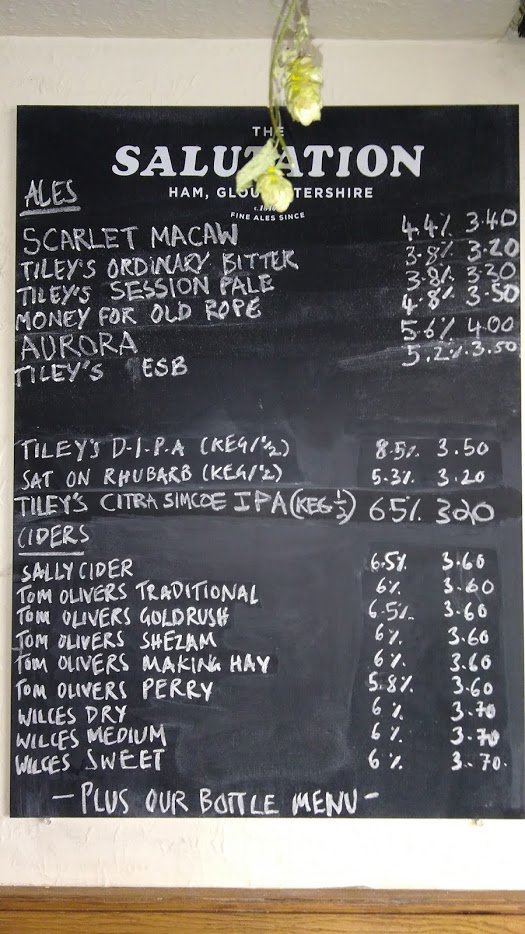 THE
SALUTATION
HAM, GLOUCESTERSHIRE
FINE ALES SINCE
ALES
SCARLET MACAW 4.4% 3.40
TILEY'S ORDINARY BITTER 3.8% 3.20
TILEY'S SESSION PALE 3.8% 3.20
MONEY FOR OLD ROPE 4.8% 3.50
AURORA 5.6% 4.00
TILEY'S ESB 5.2% 3.50
TILEY'S D-I-P-A (KEG/½) 8.5% 3.50
SAT ON RHUBARB (KEG/½) 5.3% 3.20
TILEY'S CITRA SIMCOE IPA (KEG ½) 65% 320
CIDERS
SALLY CIDER 6.5% 3.60
TOM OLIVERS TRADITIONAL 6% 3.60
TOM OLIVERS GOLDRUSH 6.5% 3.60
TOM OLIVERS SHEZAM 6% 3.60
TOM OLIVERS MAKING HAY 6% 3.60
TOM OLIVERS PERRY 5.8% 3.60
WILCES DRY 6% 3.70
WILCES MEDIUM 6% 3.70
WILCES SWEET 6% 3.70.
- PLUS OUR BOTTLE MENU -